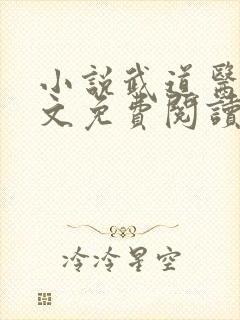 小說武道醫
文免費閱讀
冷冷星空